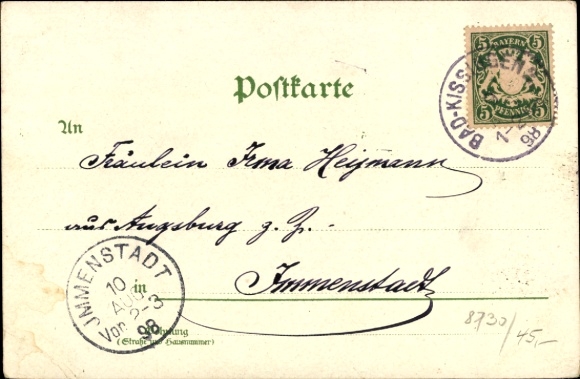 5 BAYERN 5
5 PFENNIG 5
BAD-KISSINGEN
98
Postkarte
An
Fräulein Irma Heymann
aus Augsburg z. Z.
in Immenstadt
JMMENSTADT
10
AUG
Vor. 2-3
98
Wohnung
(Straße und Hausnummer)
8730/45,-